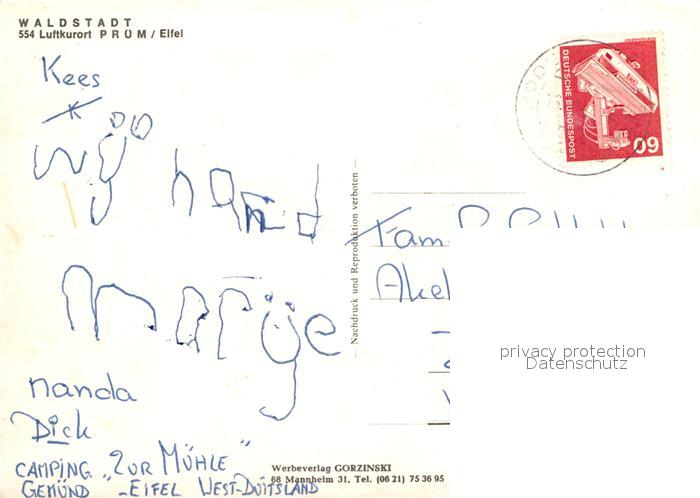 WALDSTADT
554 Luftkurort PRÜM / Eifel
Kees
Marije
nanda
Dick
CAMPING "ZUR MÜHLE"
GEMÜND - EIFEL WEST-DUITSLAND
Nachdruck und Reproduktion verboten
Werbeverlag GORZINSKI
68 Mannheim 31, Tel. (06 21) 75 36 95
DEUTSCHE BUNDESPOST
60
Fam.
privacy protection
Datenschutz